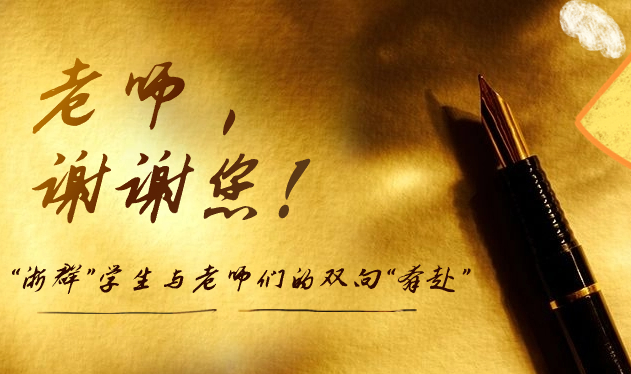 老师，
谢谢您！
“浙群”学生与老师们的双向“奔赴”